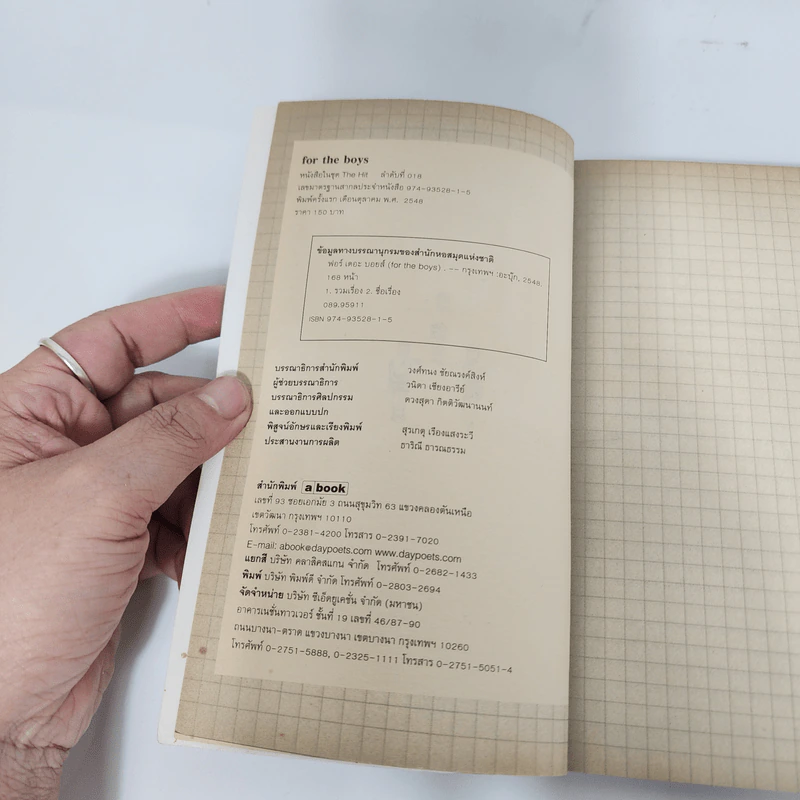 for the boys
หนังสือในชุด The Hit ลำดับที่ 018
เลขมาตรฐานสากลประจำหนังสือ 974-93528-1-5
พิมพ์ครั้งแรก เดือนตุลาคม พ.ศ. 2548
ราคา 150 บาท
ข้อมูลทางบรรณานุกรมของสำนักหอสมุดแห่งชาติ
ฟอร์ เดอะ บอยส์ (for the boys) . -- กรุงเทพฯ :อะบุ๊ก, 2548.
168 หน้า
1. รวมเรื่อง 2. ชื่อเรื่อง
089.95911
ISBN 974-93528-1-5
บรรณาธิการสำนักพิมพ์ วงศ์ทนง ชัยณรงค์สิงห์
ผู้ช่วยบรรณาธิการ วนิดา เชียงอารีย์
บรรณาธิการศิลปกรรม ดวงสุดา กิตติวัฒนานนท์
และออกแบบปก
พิสูจน์อักษรและเรียงพิมพ์ สุรเกตุ เรืองแสงระวี
ประสานงานการผลิต ธาริณี ธารณธรรม
สำนักพิมพ์ a book
เลขที่ 93 ซอยเอกมัย 3 ถนนสุขุมวิท 63 แขวงคลองตันเหนือ
เขตวัฒนา กรุงเทพฯ 10110
โทรศัพท์ 0-2381-4200 โทรสาร 0-2391-7020
E-mail: abook@daypoets.com www.daypoets.com
แยกสี บริษัท คลาสิคสแกน จำกัด โทรศัพท์ 0-2682-1433
พิมพ์ บริษัท พิมพ์ดี จำกัด โทรศัพท์ 0-2803-2694
จัดจำหน่าย บริษัท ซีเอ็ดยูเคชั่น จำกัด (มหาชน)
อาคารเนชั่นทาวเวอร์ ชั้นที่ 19 เลขที่ 46/87-90
ถนนบางนา-ตราด แขวงบางนา เขตบางนา กรุงเทพฯ 10260
โทรศัพท์ 0-2751-5888, 0-2325-1111 โทรสาร 0-2751-5051-4